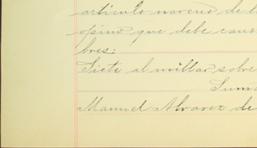 articulo noveno de l
opino que debe caus
bres:
Siete al millar, sobre
Suma
Manuel Alvarez de